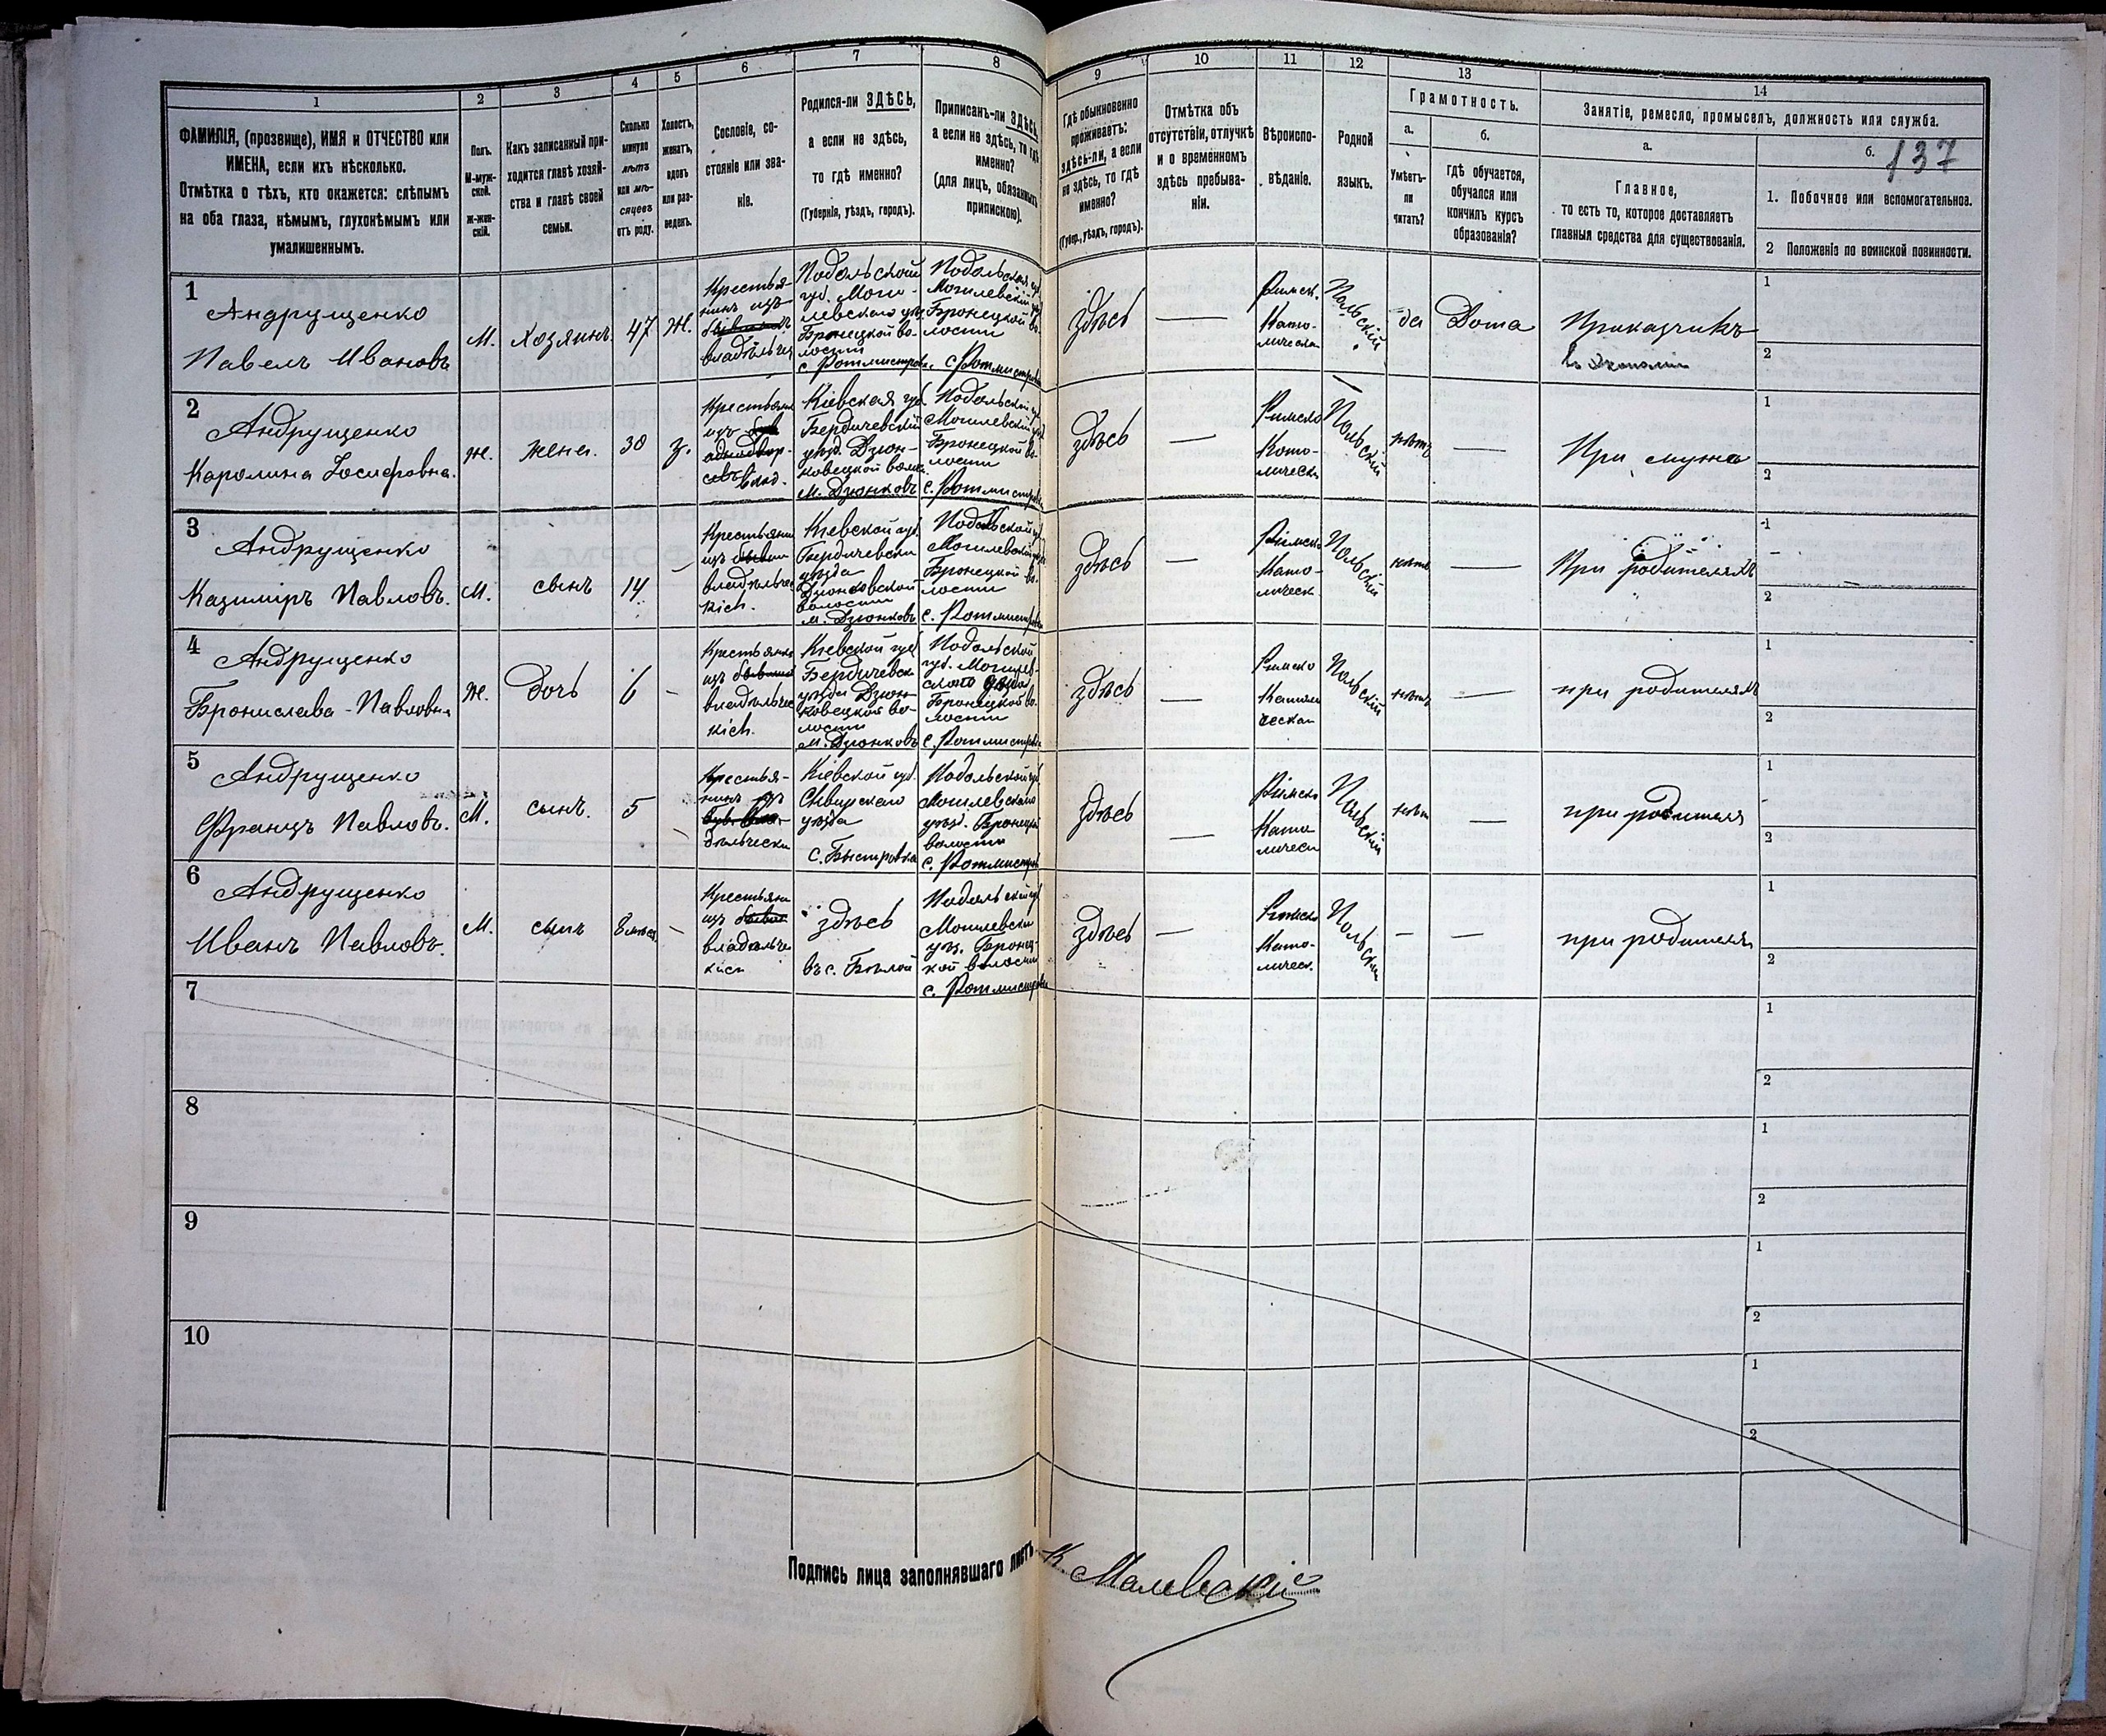 1
2
3
4
5
6
7
8
9
10
11
12
13
14
ФАМИЛІЯ, (прозвище), ИМЯ и ОТЧЕСТВО или
ИМЕНА, если ихъ нѣсколько.
Отмѣтка о тѣхъ, кто окажется: слѣпымъ
на оба глаза, нѣмымъ, глухонѣмымъ или
умалишеннымъ.
Полъ.
М-муж-
ской.
ж-жен-
скій.
Какъ записанный при-
ходится главѣ хозяй-
ства и главѣ своей
семьи.
Сколько
минуло
лѣтъ
или мѣ-
сяцевъ
отъ роду.
Холостъ,
женатъ,
вдовъ
или раз-
веденъ.
Сословіе, со-
стояніе или зва-
ніе.
Родился-ли ЗДѢСЬ,
а если не здѣсь,
то гдѣ именно?
(Губернія, уѣздъ, городъ).
Приписанъ-ли ЗДѢСЬ,
а если не здѣсь, то гдѣ
именно?
(для лицъ, обязанныхъ
припискою).
Гдѣ обыкновенно
проживаетъ:
здѣсь-ли, а если
не здѣсь, то гдѣ
именно?
(Губер., уѣздъ, городъ).
Отмѣтка объ
отсутствіи, отлучкѣ
и о временномъ
здѣсь пребыва-
ніи.
Вѣроиспо-
вѣданіе.
Родной
языкъ.
Грамотность.
а.
Умѣетъ-
ли
читать?
б.
Гдѣ обучается,
обучался или
кончилъ курсъ
образованія?
Занятіе, ремесло, промыселъ, должность или служба.
а.
Главное,
то есть то, которое доставляетъ
главныя средства для существованія.
б.
137
1. Побочное или вспомогательное.
2 Положеніе по воинской повинности.
1
Андрущенко
Павелъ Ивановъ
М.
Хозяинъ
47
Ж.
Крестья-
нинъ изъ
владѣльч
Подольской
губ. Моги-
левскаго уѣз
Бронецкой во-
лости
с Ротмистровк.
Подольская губ
Могилевскій
Бронецкой во-
лости
с Ротмистровк
здѣсь
—
Римск.
Като-
лическа
Польскій
да
Дома
Приказчикъ
въ экономіи
1
2
2
Андрущенко
Каролина Іосифовна.
ж.
жена.
30
з.
Крестьянк
изъ
влад.
Кіевская губ
Бердичевскій
уѣзд. Дзюн-
ковецкой волос
м. Дзюнковъ
Подольской губ
Могилевскій
Бронецкой во-
лости
с. Ротмистровк
здѣсь
—
Римско
Като-
лическ
Польскій
нѣтъ
—
При мужѣ
1
2
3
Андрущенко
Казиміръ Павловъ.
М.
сынъ
14
–
Крестьянин
изъ бывш
владѣльчес
кich.
Кіевской губ.
Бердичевск
уѣзда
Дзюнковской
волости
м. Дзюнковъ
Подольской губ
Могилевской
Бронецкой во-
лости
с. Ротмистровк
здѣсь
—
Римско
Като-
лическ
Польскій
нѣтъ
—
При родителяхъ
1
2
4
Андрущенко
Бронислава - Павловна
ж.
Дочь
6
-
Крестьянка
изъ бывших
владѣльчес
кich.
Кіевской губ
Бердичевск
уѣзда Дзюн-
ковецкой во-
лости
м. Дзюнковъ
Подольской
губ. Могилев-
скаго уѣзда
Бронецкой во-
лости
с. Ротмистровк
здѣсь
—
Римско
Католи
ческая
Польскій
нѣтъ
—
при родителяхъ
1
2
5
Андрущенко
Францъ Павловъ.
М.
сынъ.
5
-
Крестья-
нинъ изъ
дѣльчески
Кіевской губ.
Сквирскаго
уѣзда
С. Быстровка
Подольской губ
Могилевскаго
уѣзд. Бронецкой
волости
с. Ротмистровк
здѣсь
—
Римско
Като
лическ
Польскій
нѣтъ
—
при родителя
1
2
6
Андрущенко
Иванъ Павловъ.
М.
сынъ
8 мѣсяц
-
Крестьянин
изъ бывш
владѣльче
кich
здѣсь
въ с. Бѣлой
Подольской губ
Могилевски
уѣз. Бронец-
кой волости
с. Ротмистровк
здѣсь
—
Римско
Като-
лическ.
Польскій
–
–
при родителях
1
2
7
1
2
8
1
2
9
1
2
10
1
2
Подпись лица заполнявшаго листъ
К. Малевскій